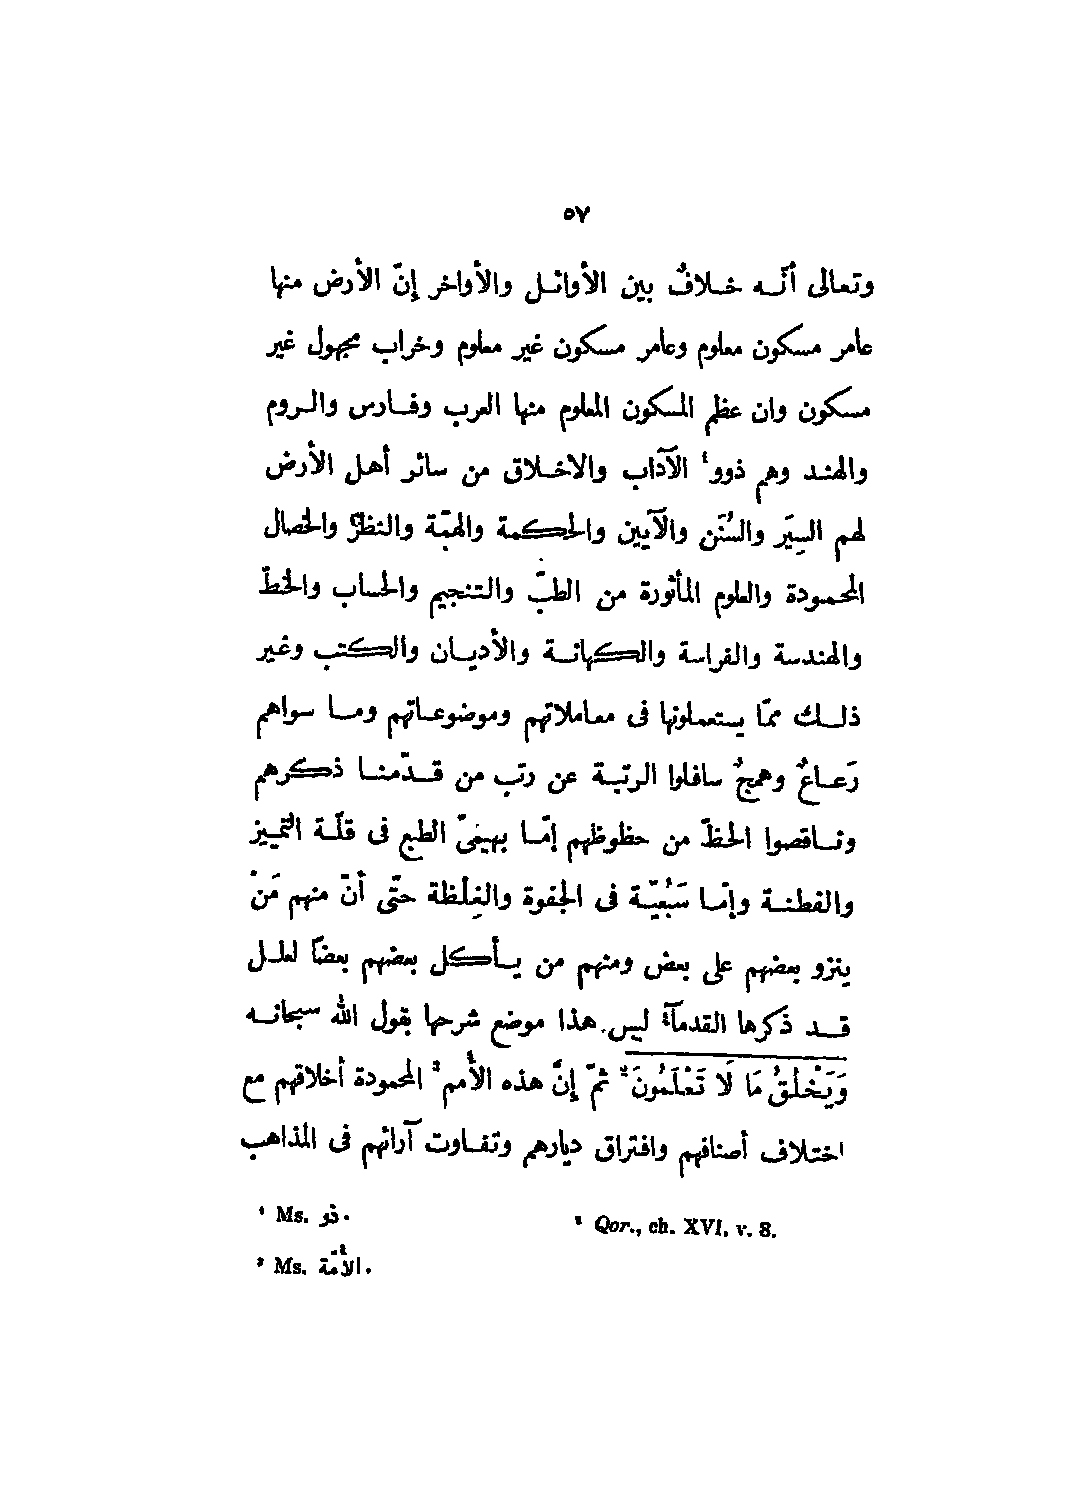 ٥٧
وتعالى أنّه خلافٌ بين الأوائل والأواخر إنّ الأرض منها
عامر مسكون معلوم وعامر مسكون غير معلوم وخراب مجهول غير
مسكون وان عظم المسكون المعلوم منها العرب وفارس والروم
والهند وهم ذوو¹ الآداب والاخلاق من سائر أهل الأرض
لهم السِيَر والسُنَن والآيين والحكمة والهمّة والنظرُ والخصال
المحمودة والعلوم المأثورة من الطبّ والتنجيم والحساب والخطّ
والهندسة والفراسة والكهانة والأديان والكتب وغير
ذلك ممّا يستعملونها فى معاملاتهم وموضوعاتهم وما سواهم
رَعاعٌ وهمجٌ سافلوا الرتبة عن رتب من قدّمنا ذكرهم
وناقصوا الحظّ من حظوظهم إمّا بهيمىّ الطبع فى قلّة التمييز
والفطنة وإمّا سَبُعيّة فى الجفوة والغِلظة حتّى أنّ منهم مَنْ
ينزو بعضهم على بعض ومنهم من يأكل بعضهم بعضًا لعلل
قد ذكرها القدمآء ليس هذا موضع شرحها يقول الله سبحانه
وَيَخْلُقُ مَا لَا تَعْلَمُونَ² ثمّ إنّ هذه الأمم³ المحمودة أخلاقهم مع
اختلاف أصنافهم وافتراق ديارهم وتفاوت آرائهم فى المذاهب
¹ Ms. ذو.
² Qor., ch. XVI, v. 8.
³ Ms. الأمّة.